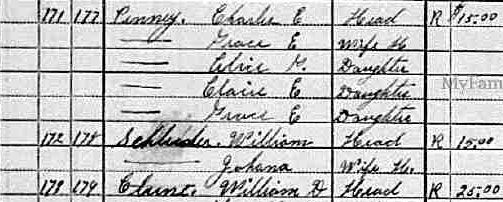 171 177 Pinney. Charles E Head R $15.00
— Grace E Wife H
— Alice Daughter
— Claire E Daughter
— Grace E Daughter
172 178 William Head R 15.00
— Johana Wife H.
179 William D Head R 25.00
MyFam